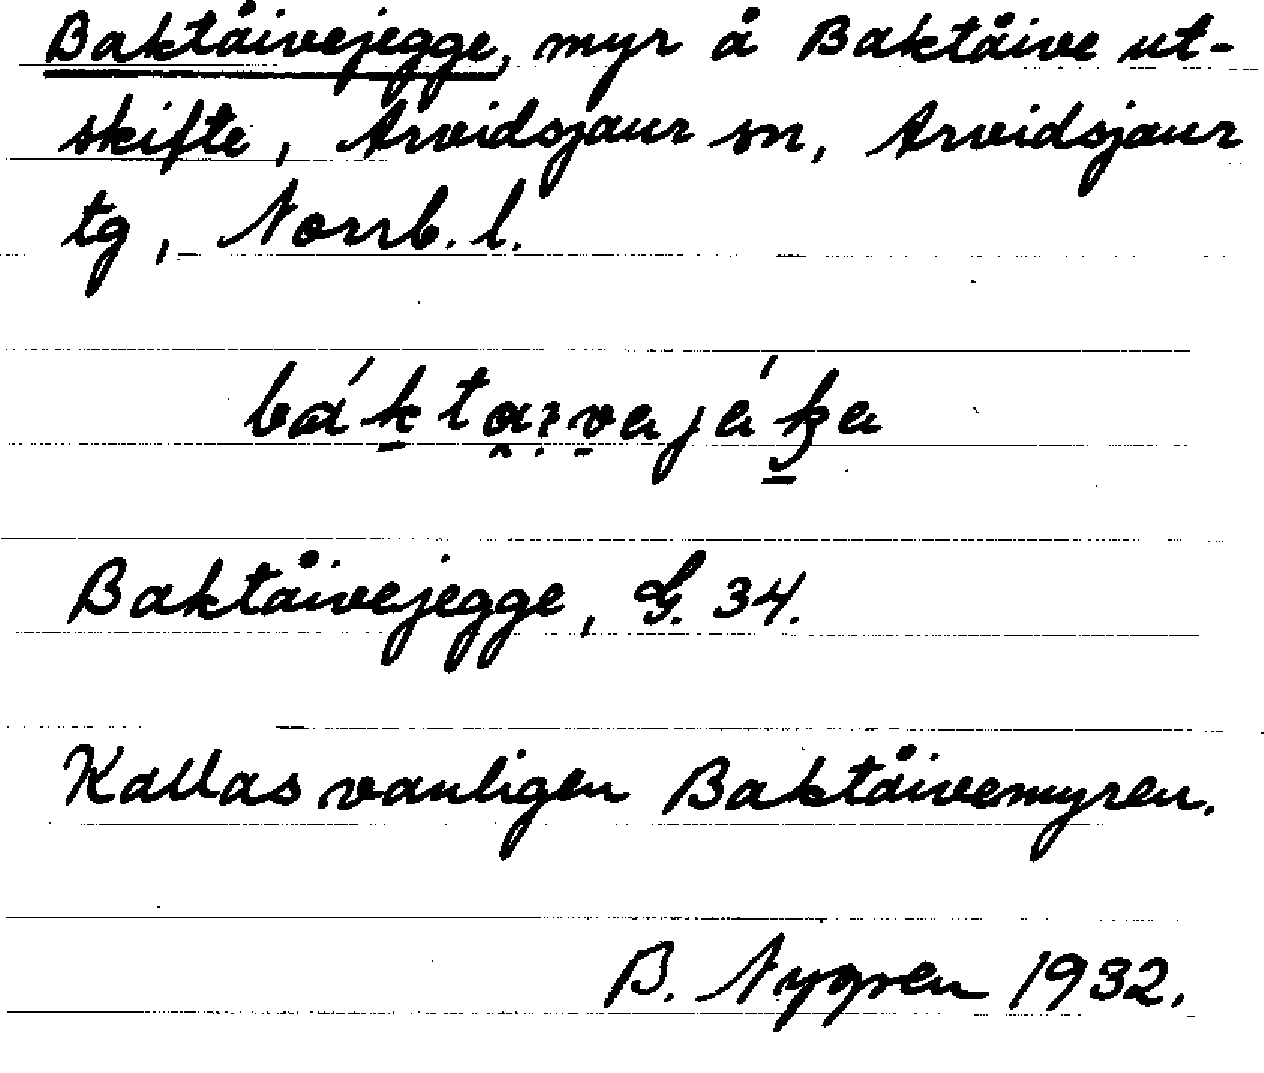 Baktåivejegge, myr å Baktåive ut-
skifte, Arvidsjaur sn, Arvidsjaur
tg, Norrb. l.
Baktåivejegge, G. 34.
Kallas vanligen Baktåivemyren.
B. Nygren 1932.